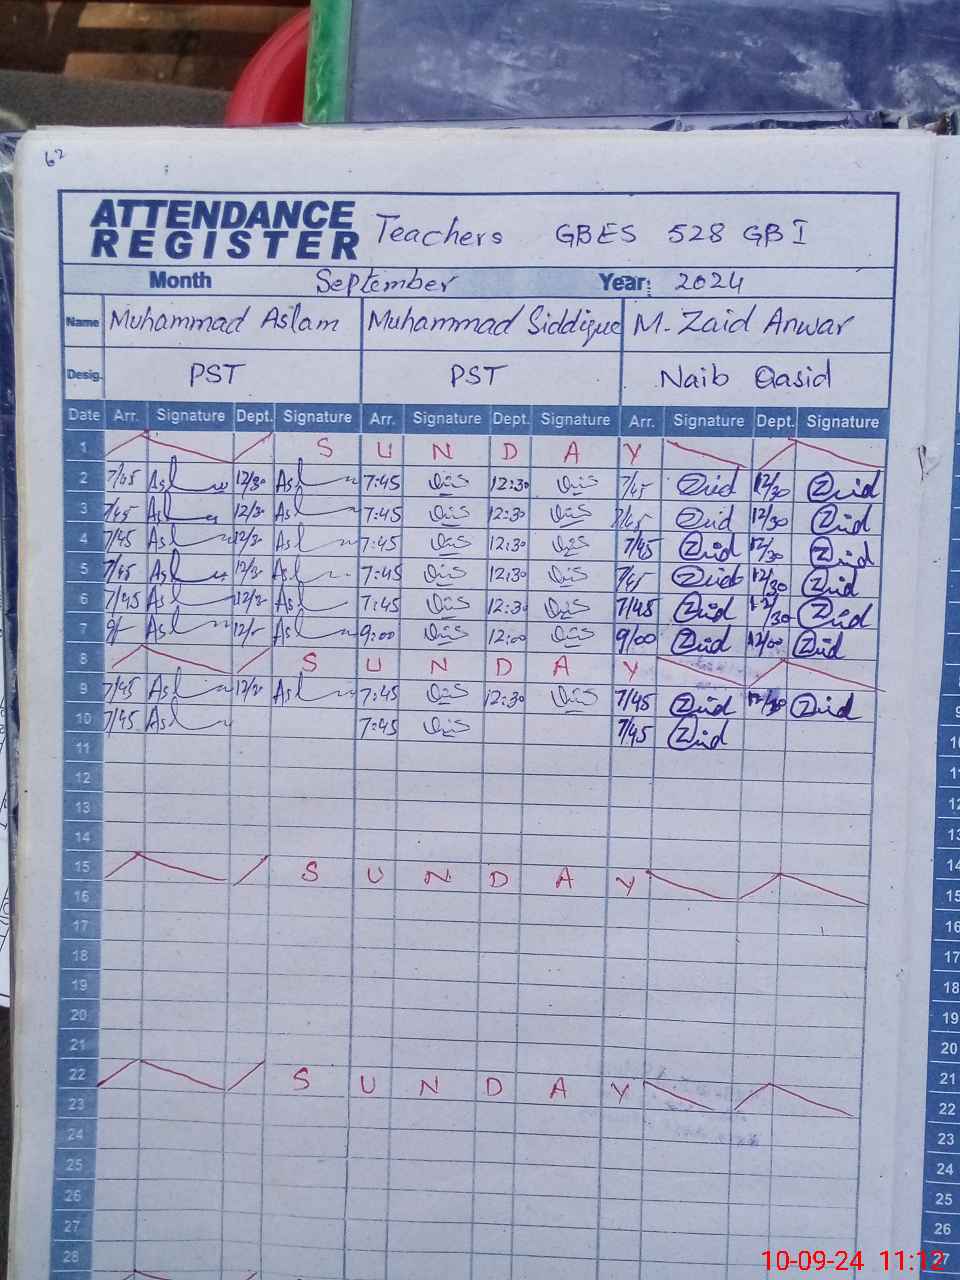 62
ATTENDANCE
REGISTER Teachers GBES 528 GBI
Month September Year: 2024
Name Muhammad Aslam Muhammad Siddique M. Zaid Anwar
Desig. PST PST Naib Qasid
Date Arr. Signature Dept. Signature Arr. Signature Dept. Signature Arr. Signature Dept. Signature
1 S U N D A Y
2 7/45 12/30 7:45 12:30 7/45 Zaid 12/30 Zaid
3 7/45 12/30 7:45 12:30 7/45 Zaid 12/30 Zaid
4 7/45 12/30 7:45 12:30 7/45 Zaid 12/30 Zaid
5 7/45 12/30 7:45 12:30 7/45 Zaid 12/30 Zaid
6 7/45 7:45 12:30 7/45 Zaid 12/30 Zaid
7 9:00 12:00 9/00 Zaid 12/00 Zaid
8 S U N D A Y
9 7/45 12/30 7:45 12:30 7/45 Zaid 12/30 Zaid
10 7/45 7:45 7/45 Zaid
11
12
13
14
15 S U N D A Y
16
17
18
19
20
21
22 S U N D A Y
23
24
25
26
27
28
9
10
11
12
13
14
15
16
17
18
19
20
21
22
23
24
25
26
27
10-09-24 11:12